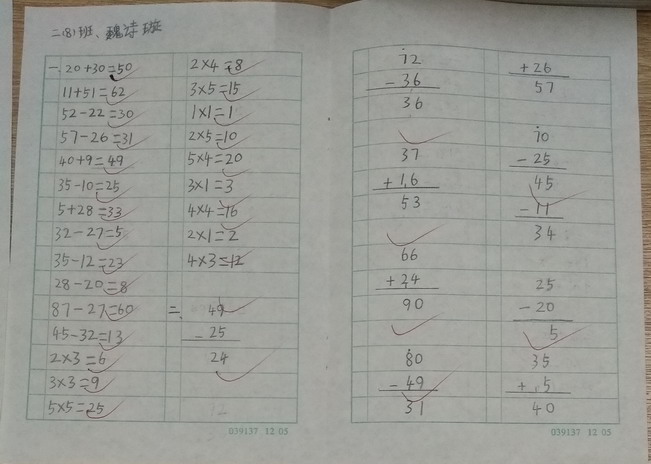 二(8)班、魏诗班
一. 20+30=50
11+51=62
52-22=30
57-26=31
40+9=49
35-10=25
5+28=33
32-27=5
35-12=23
28-20=8
87-27=60
45-32=13
2×3=6
3×3=9
5×5=25
2×4=8
3×5=15
1×1=1
2×5=10
5×4=20
3×1=3
4×4=16
2×1=2
4×3=12
二. 49
-25
24
12
039137 12 05
72
-36
36
37
+16
53
66
+24
90
80
-49
31
+26
57
70
-25
45
-11
34
25
-20
5
35
+5
40
039137 12 05